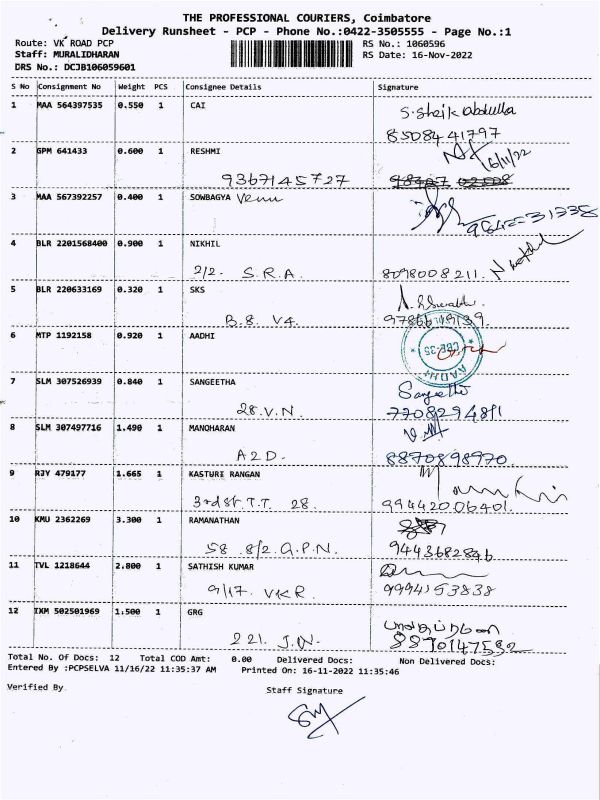 THE PROFESSIONAL COURIERS, Coimbatore
Delivery Runsheet - PCP - Phone No.:0422-3505555 - Page No.:1
Route: VK ROAD PCP RS No.: 1060596
Staff: MURALIDHARAN RS Date: 16-Nov-2022
DRS No.: DCJB106059601
S No Consignment No Weight PCS Consignee Details Signature
1 MAA 564397535 0.550 1 CAI S. Sheik Abdulla
8508441797
2 GPM 641433 0.600 1 RESHMI
9367145727 16/11/22
3 MAA 567392257 0.400 1 SOWBAGYA Venu
4 BLR 2201568400 0.900 1 NIKHIL
2/2. S.R.A. 8098008211.
5 BLR 220633169 0.320 1 SKS
B.8. V4
6 MTP 1192158 0.920 1 AADHI
AADHI CBE-35
7 SLM 307526939 0.840 1 SANGEETHA Sangeetha
28.V.N.
8 SLM 307497716 1.490 1 MANOHARAN
A2D. 8870898970.
9 RJY 479177 1.665 1 KASTURI RANGAN
3rd St. T.T. 28. 9944206401.
10 KMU 2362269 3.300 1 RAMANATHAN
58 8/2 G.P.N. 9443682846
11 TVL 1218644 2.800 1 SATHISH KUMAR
9/17. VKR. 9994153838
12 IXM 502501969 1.500 1 GRG
221. J.N. 8870147532
Total No. Of Docs: 12 Total COD Amt: 0.00 Delivered Docs: Non Delivered Docs:
Entered By :PCPSELVA 11/16/22 11:35:37 AM Printed On: 16-11-2022 11:35:46
Verified By Staff Signature